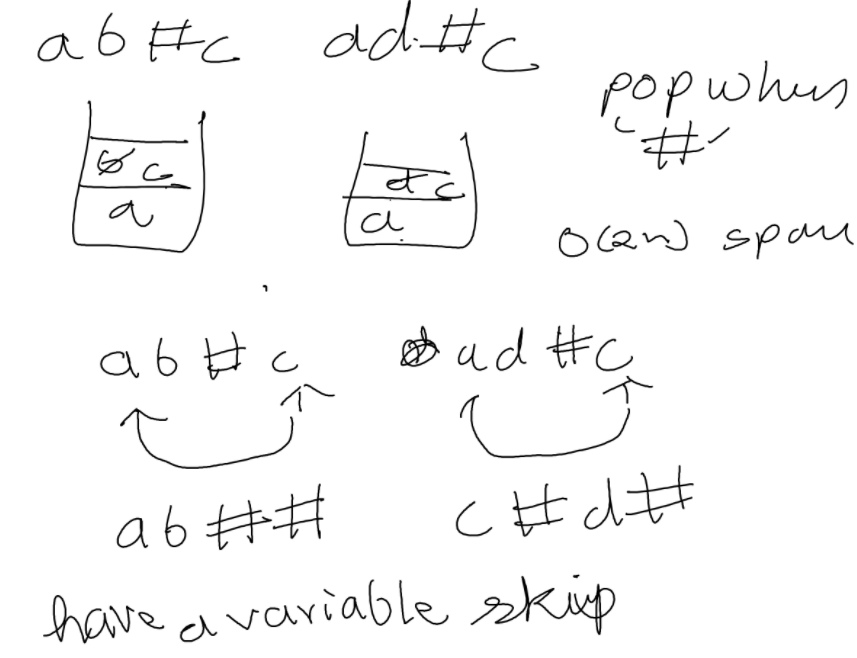 ab#c ad.#c
pop when
"#"
b c d c
a a
O(2n) space
ab#c ad#c
ab## c#d#
have a variable skip